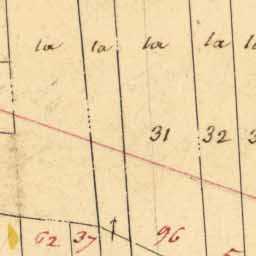 la la la la la
31 32 3
62 37 96 5